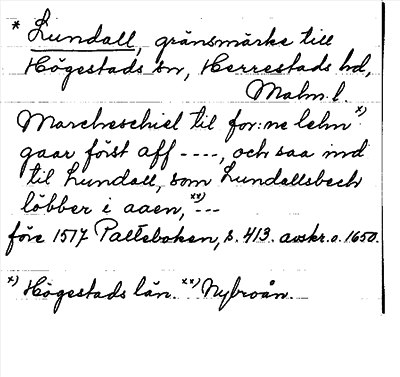 * Lundall, gränsmärke till
Högestads sn, Herrestads hd,
Malm. l.
Marcheschiel til for:ne lehn x)
gaar först aff ----, och saa ind
til Lundall, som Lundallsbech
löbber i aaen, xx) ---
före 1517 Palteboken, s. 413. avskr. o. 1650.
x) Högestads län. xx) Nybroån.